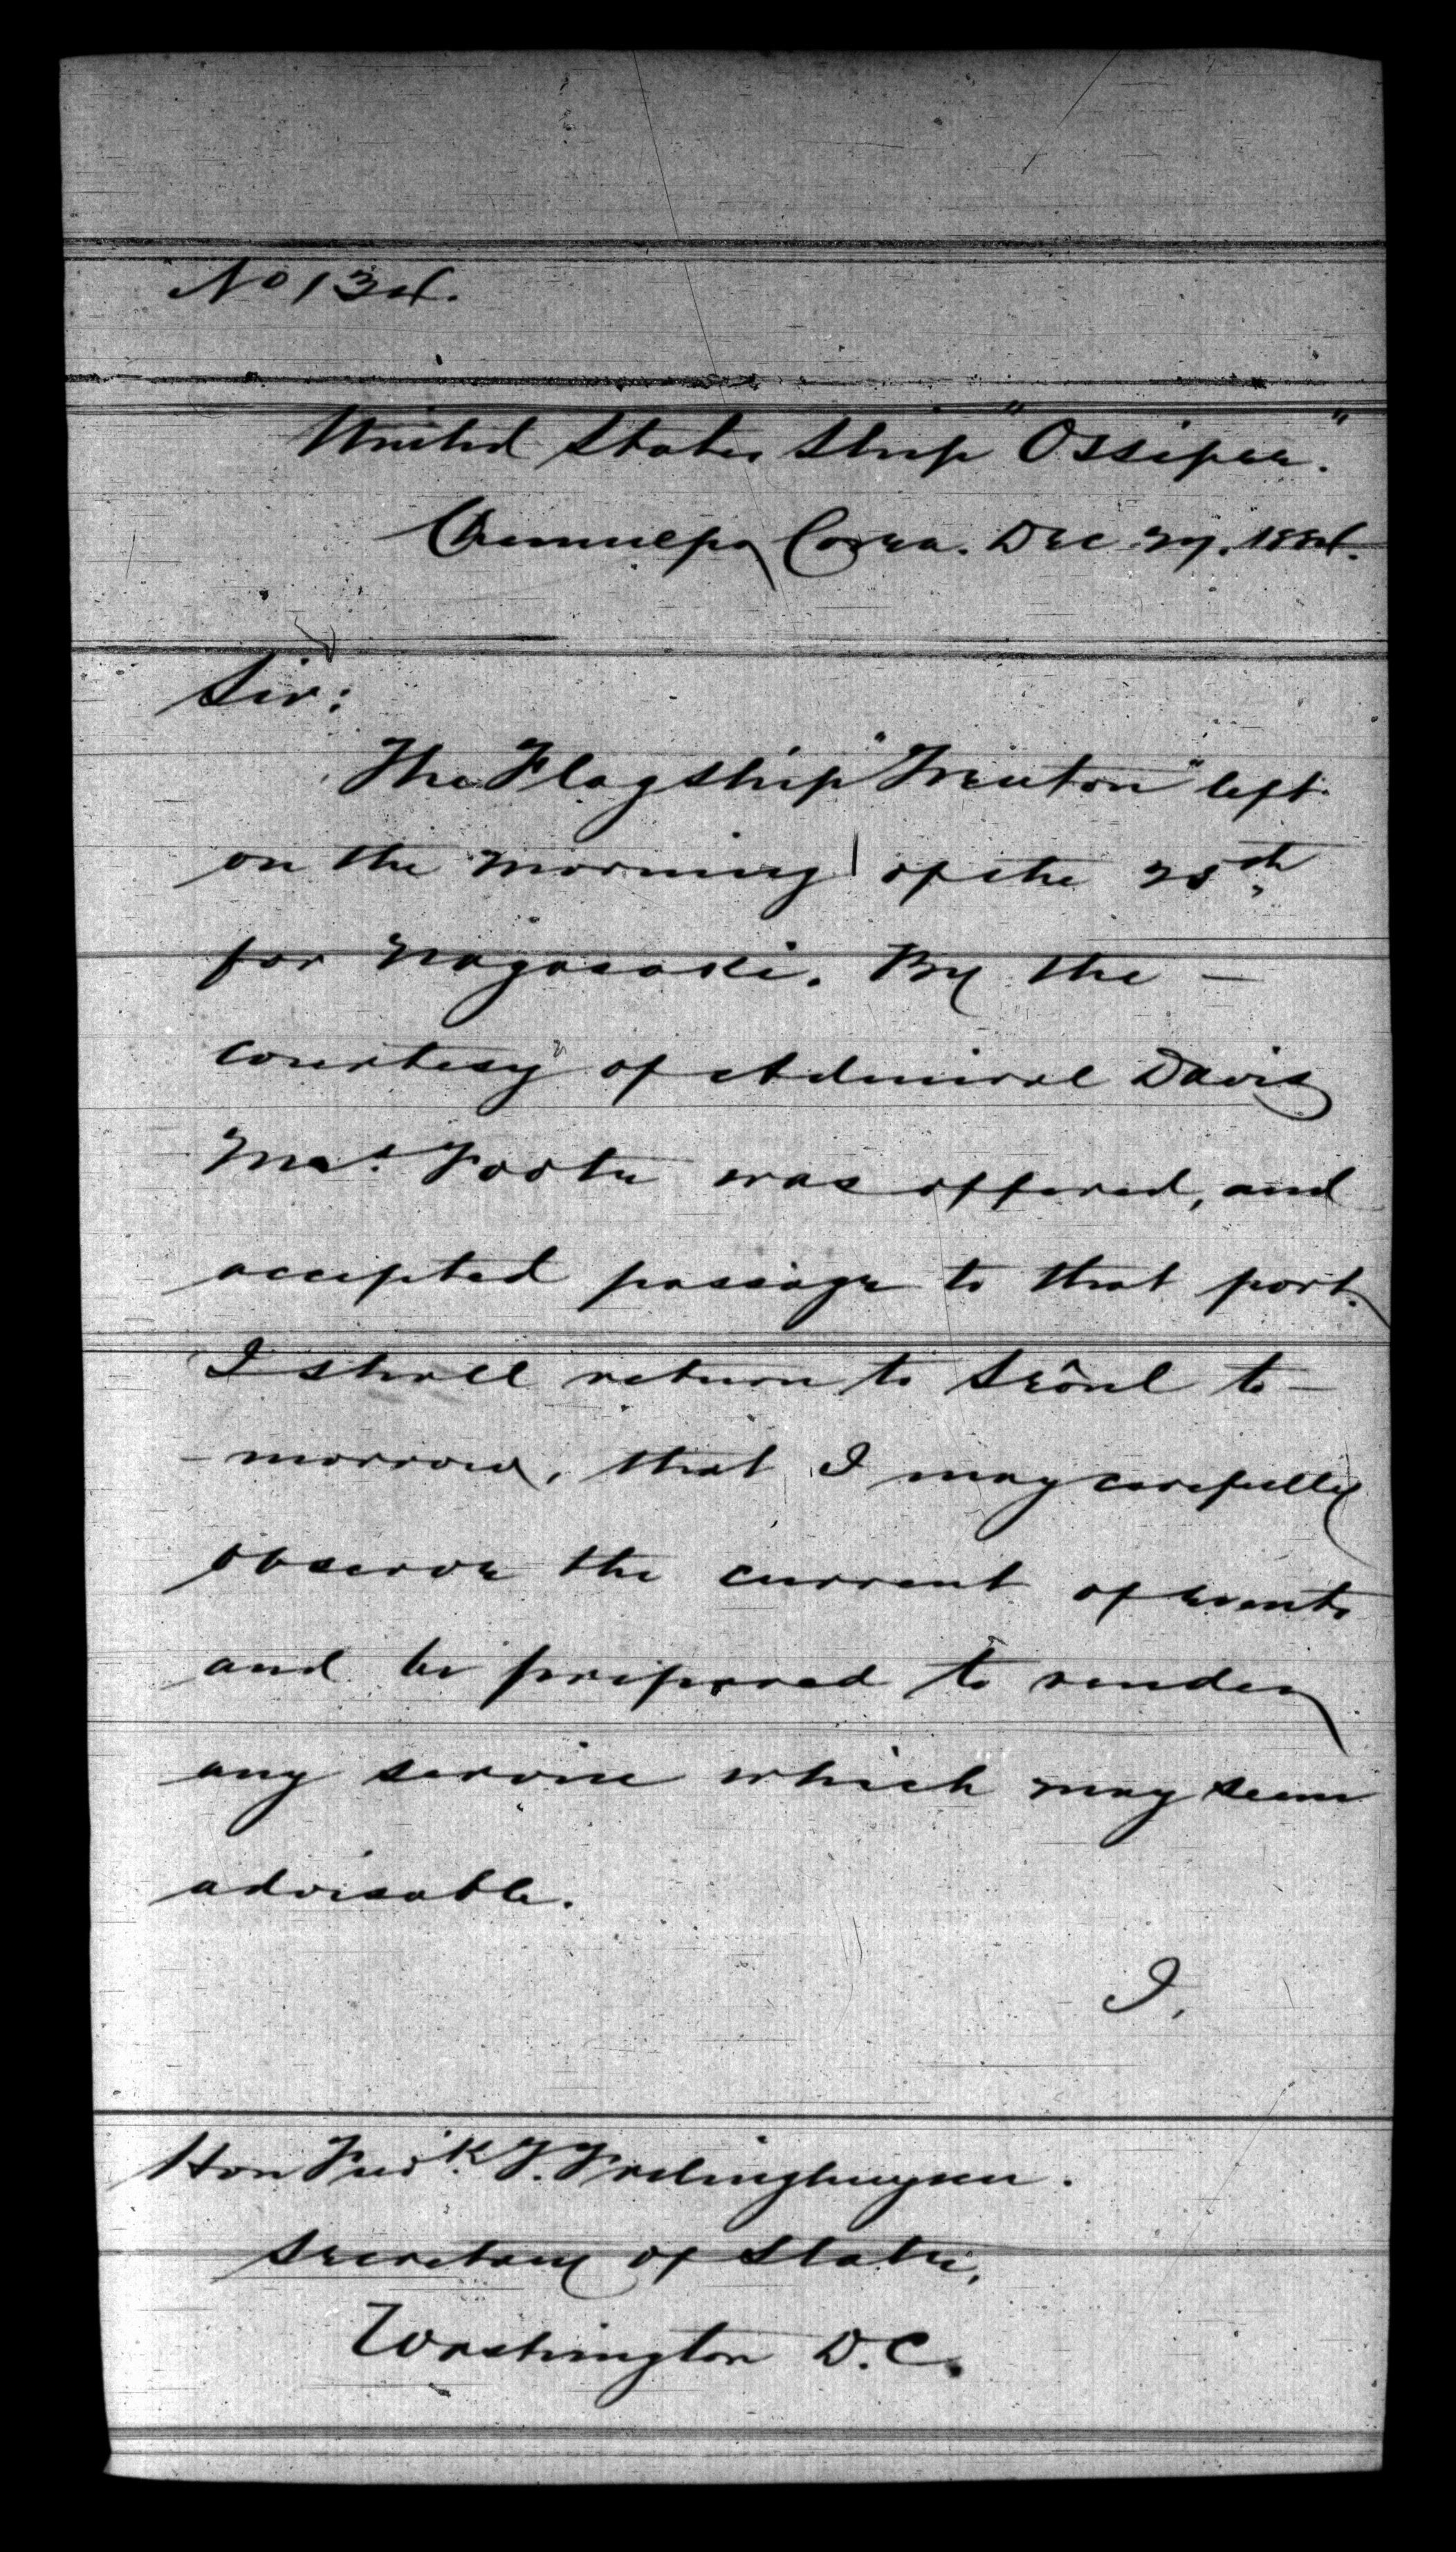 No 134.
United States Ship "Ossipee."
Chemulpo Corea. Dec 27. 1884.
Sir:
The Flagship "Trenton" left
on the morning of the 25th
for Nagasaki. By the —
courtesy of Admiral Davis
Mrs. Foote was offered, and
accepted passage to that port.
I shall return to Sëôul to-
-morrow, that I may carefully
observe the current of events
and be prepared to render
any service which may seem
advisable.
I,
Hon Fred'k. T. Frelinghuysen.
Secretary of State,
Washington D.C.